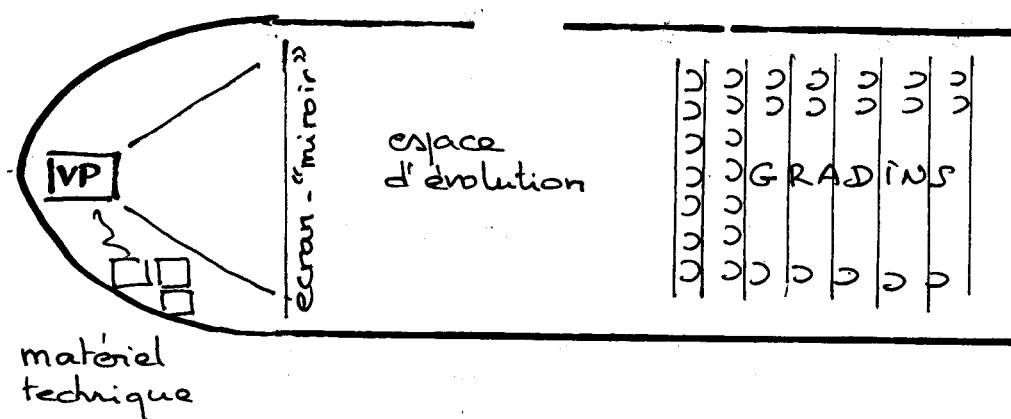 VP
écran - "miroir"
espace
d'évolution
GRADINS
matériel
technique